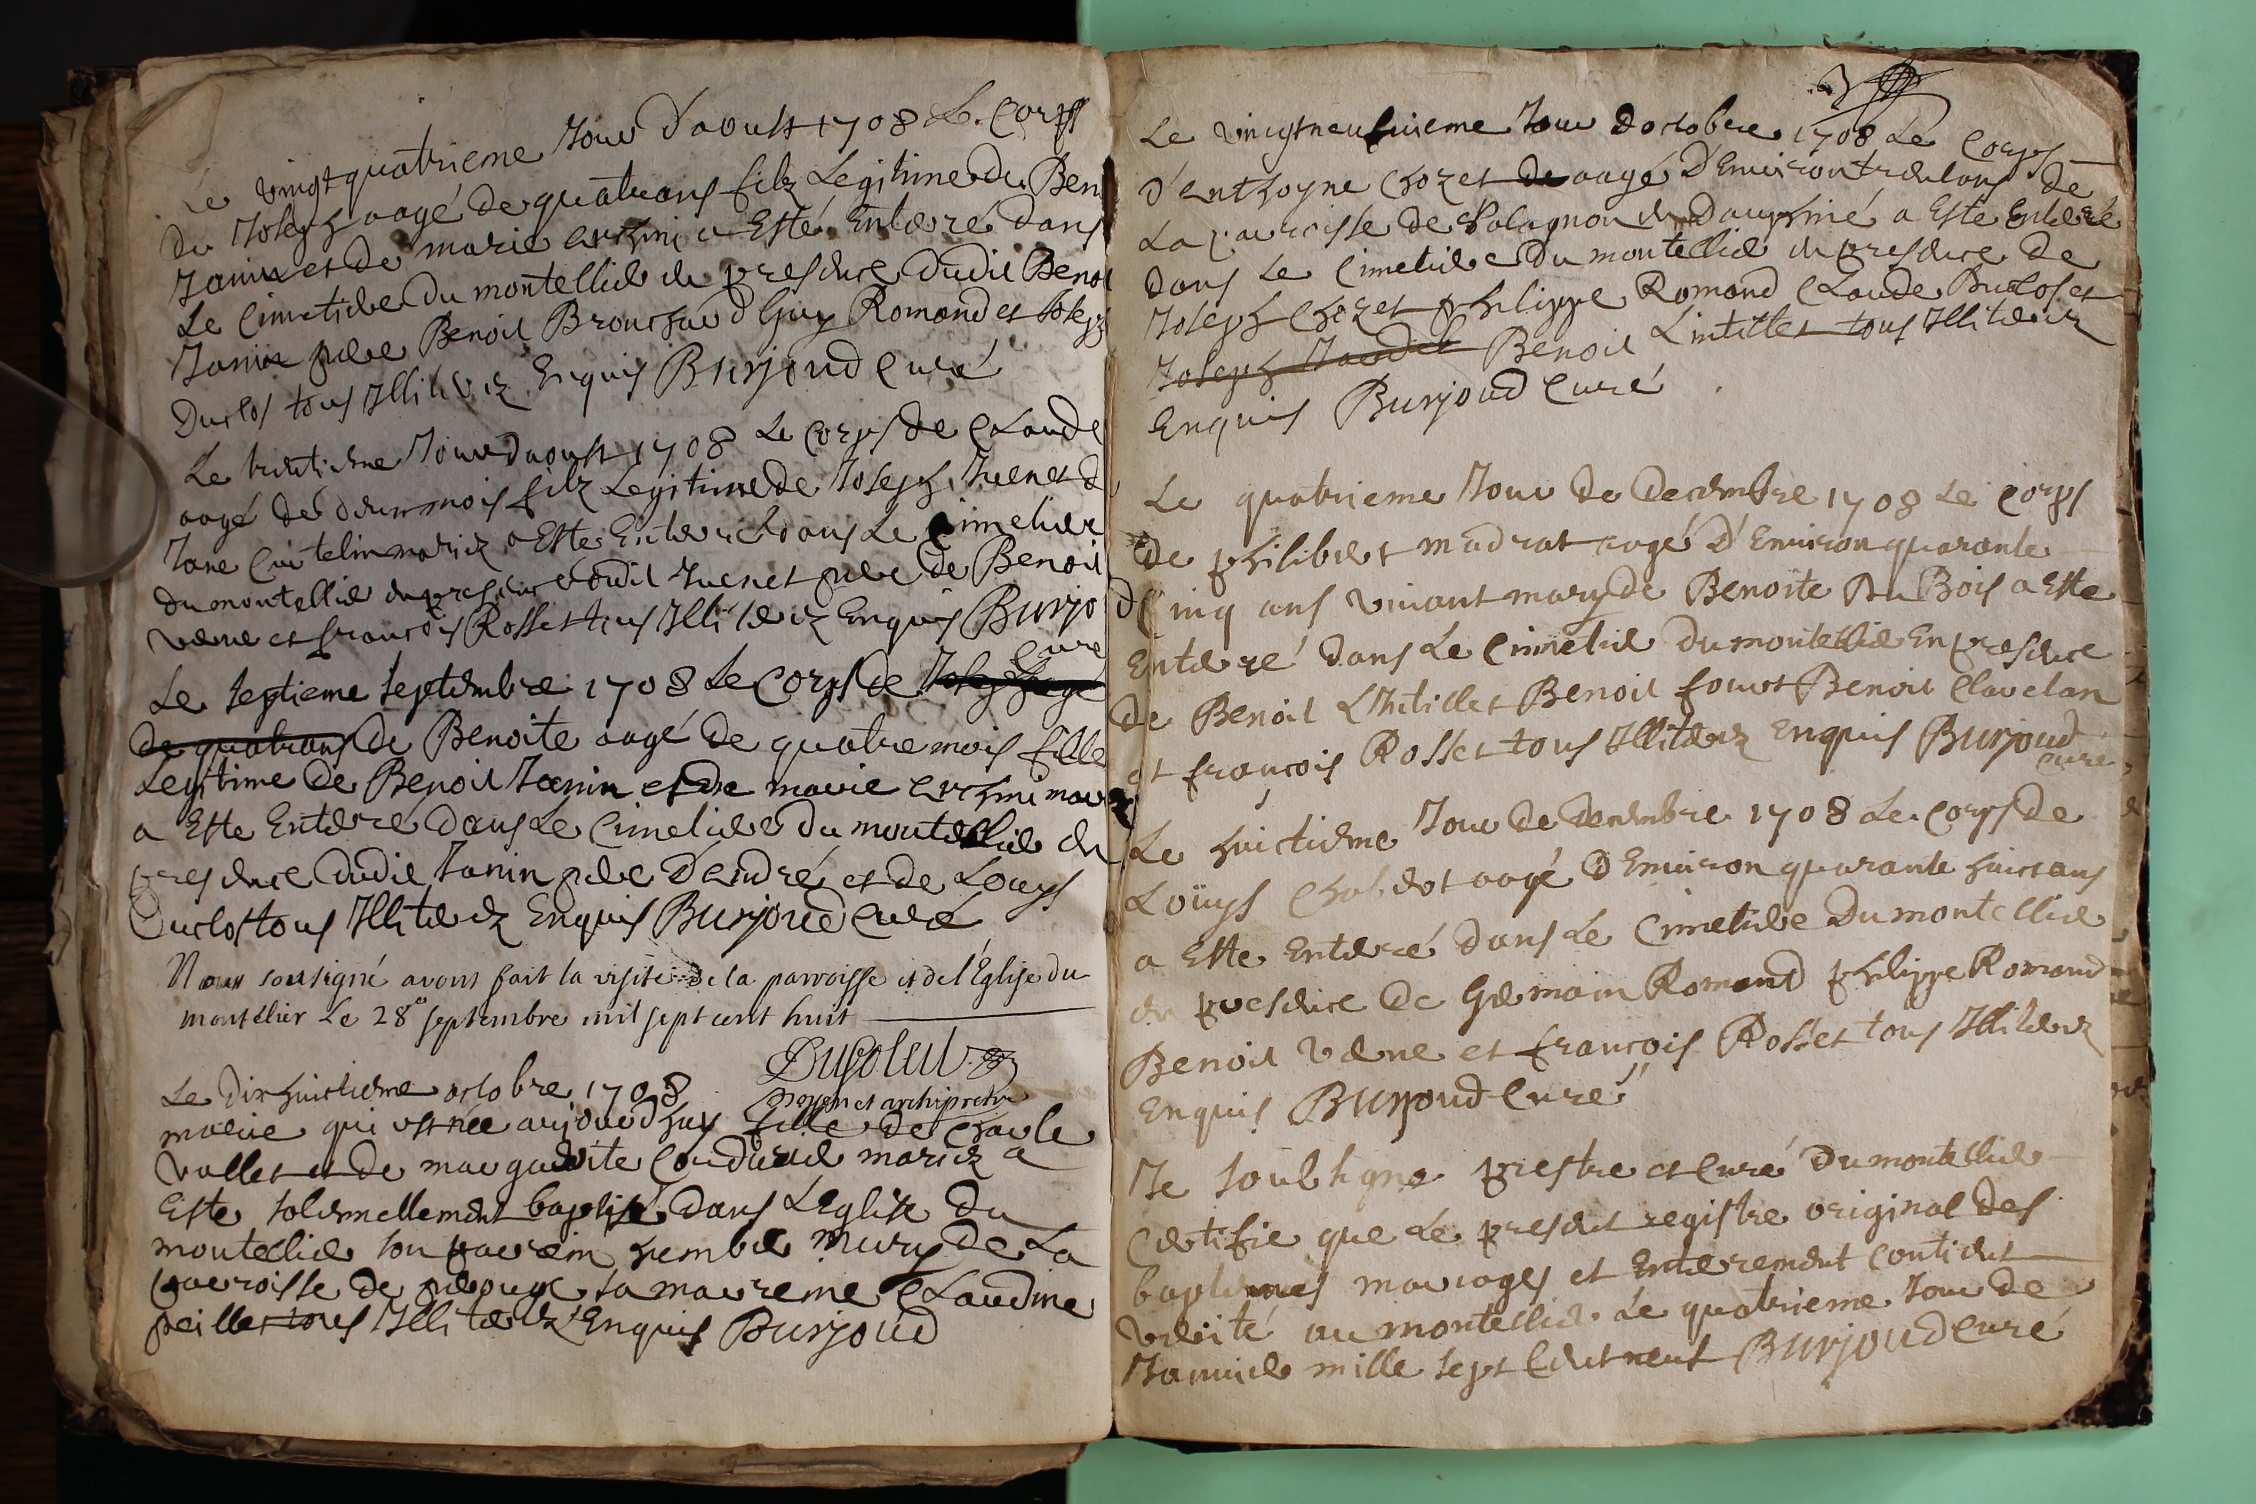 Le vingt quatrieme Jour d'aoust 1708 Le Corps
du Joseph aagé de quatrans filz Legitime du Ben
Janin et de marie a Esté Enterré dans
Le Cimetiere du montellier en presence dudit Benoi
Janin pere Benoit Brouchud Guy Romand et Joseph
Duclos tous Illiterez Enquis Burjoud Curé
Le trentieme Jour d'aoust 1708 Le Corps de Claude
aagé de deux mois filz Legitime de Joseph Juenet d
Jane mariez a Esté Enterré dans Le Cimetier
du montellier en presence dudit Juenet pere de Benoit
verne et francois Rosset tous Illiterez Enquis Burjo
Curé
Le septieme septembre 1708 Le Corps de Joseph aagé
de quatrans de Benoite aagé de quatre mois fille
Legitime de Benoit Janin et de marie mar
a Esté Enterré dans Le Cimetiere du montellier en
presence dudit Janin pere d'Endré et de Louys
Duclos tous Illiterez Enquis Burjoud Curé
Nous soussigné avons fait la visite de la parroisse et de l'Eglise du
montélier Le 28e septembre mil sept cent huit
Le Dixhuictieme octobre 1708
Doyen et archipretre
marie qui est née aujourdhuy fille de Charle
vallet et de marguerite mariez a
Esté solemnellement baptisé dans L'Eglise du
montellier son parrein humber mury de La
parroisse de perouge sa marreine Claudine
peillet tous Illiterez Enquis Burjoud
Le vingt neufvieme Jour d'octobre 1708 Le Corps
d'enthoyne Chozet de aagé d'Environ trentans de
La parroisse de en Dauphiné a Esté Enterré
dans Le Cimetiere du montellier en presence de
Joseph Chozet philippe Romand Claude Duclos et
Joseph Benoit Lintillet tous Illiterez
Enquis Burjoud Curé
Le quatrieme Jour de Decembre 1708 Le Corps
de philibert madrat aagé d'Environ quarante
Cinq ans vivant mary de Benoite Du Bois a Esté
Enterré dans Le Cimetier du montellier En presence
de Benoit Lhitillet Benoit fouret Benoit Clavelan
et francois Rosset tous Illiterez Enquis Burjoud
Curé
Le huictieme Jour de Decembre 1708 Le Corps de
Loüys aagé d'Environ quarante huict ans
a Esté Enterré dans Le Cimetiere du montellier
en presence de Germain Romand philippe Romand
Benoit verne et francois Rosset tous Illiterez
Enquis Burjoud Curé
Je soubsigne prestre et Curé du montellier
Certifie que Le present registre original des
baptemes mariages et Enterrement Contient
verité au montellier Le quatrieme Jour de
Janvier mille sept Cent neuf Burjoud Curé